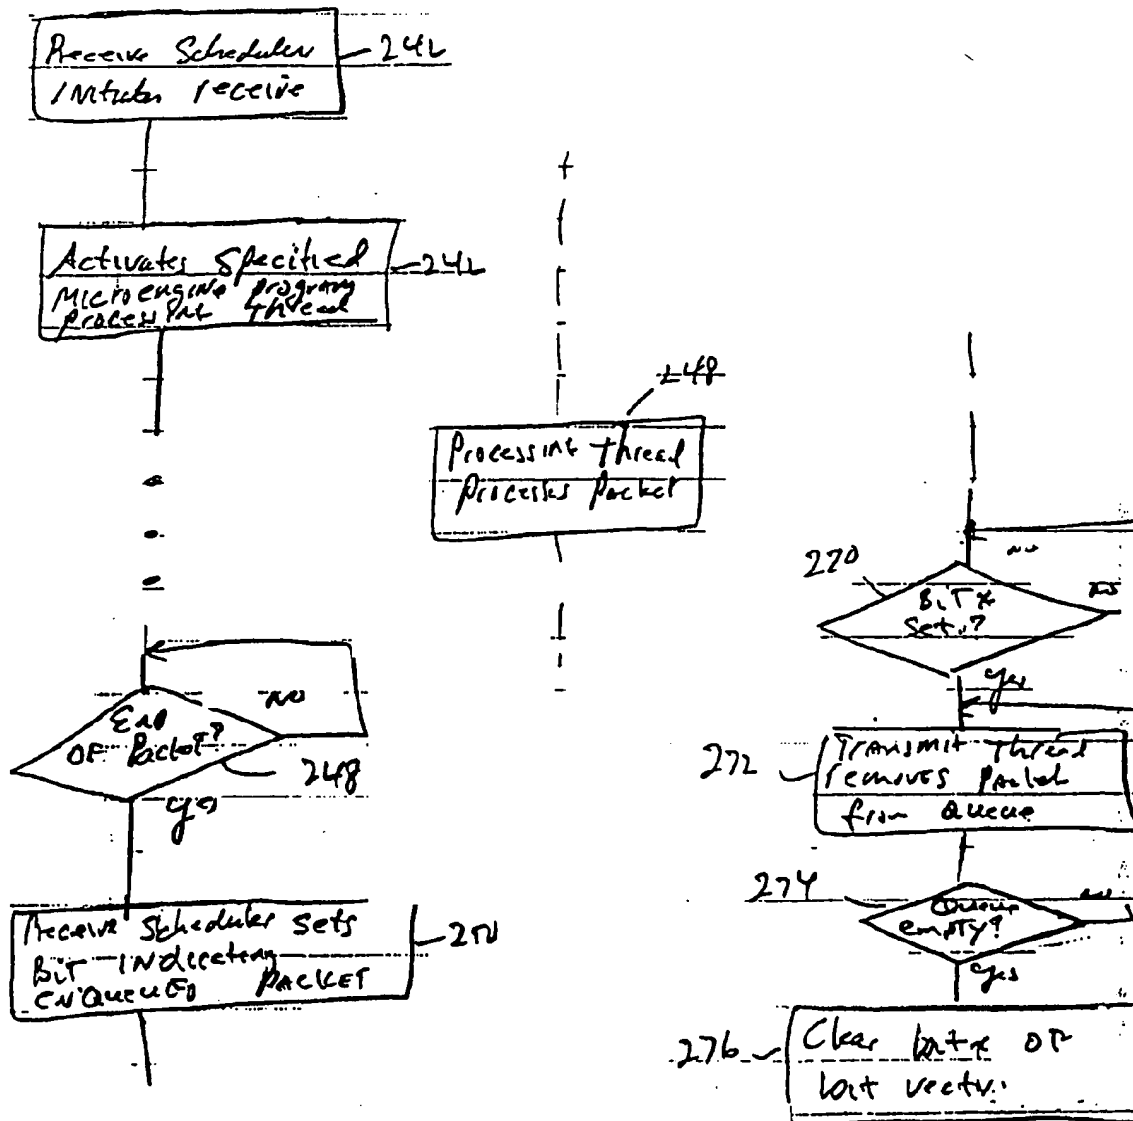 Receive Scheduler
Initiates receive
242
Activates specified
microengine program
processing thread
242
248
Processing thread
processes packet
End
OF Packet?
NO
248
yes
Receive scheduler sets
BIT INdicating
ENQUEUED PACKET
250
270
BiTx
Set?
no
no
yes
272
Transmit thread
removes packet
from Queue
274
Queue
empty?
no
yes
276
Clear bitx OF
bit vector